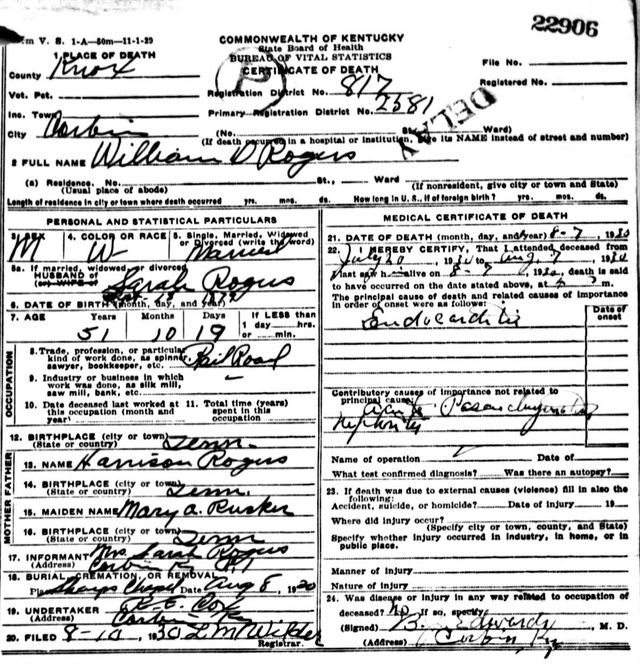 22906
m V. S. 1-A—50m—11-1-29
COMMONWEALTH OF KENTUCKY
State Board of Health
BUREAU OF VITAL STATISTICS
CERTIFICATE OF DEATH
1 PLACE OF DEATH
County Knox
File No.
Registration District No. 817
Registered No.
Vot. Pct.
Primary Registration District No. 2581
DELAY
Inc. Town
City Corbin (No. St. Ward)
(If death occurred in a hospital or institution, give its NAME instead of street and number)
2 FULL NAME William D Rogers
(a) Residence. No. St., Ward
(Usual place of abode) (If nonresident, give city or town and State)
Length of residence in city or town where death occurred yrs. mos. ds. How long in U. S., if of foreign birth? yrs. mos. ds.
PERSONAL AND STATISTICAL PARTICULARS
3. SEX 4. COLOR OR RACE 5. Single, Married, Widowed or Divorced (write the word)
M W Married
5a. If married, widowed or divorced
HUSBAND of
(or) WIFE of Sarah Rogers
6. DATE OF BIRTH (month, day, and year)
7. AGE Years Months Days If LESS than 1 day hrs. or min.
51 10 19
OCCUPATION
8. Trade, profession, or particular kind of work done, as spinner, sawyer, bookkeeper, etc. Rail Road
9. Industry or business in which work was done, as silk mill, saw mill, bank, etc.
10. Date deceased last worked at this occupation (month and year)
11. Total time (years) spent in this occupation
12. BIRTHPLACE (city or town) (State or country) Tenn.
MOTHER FATHER
13. NAME Harrison Rogers
14. BIRTHPLACE (city or town) (State or country) Tenn.
15. MAIDEN NAME Mary A. Rucker
16. BIRTHPLACE (city or town) (State or country) Tenn
17. INFORMANT Mrs. Sarah Rogers
(Address) Corbin Ky R1
18. BURIAL, CREMATION, OR REMOVAL
Place Sharps Chapel Date Aug 8, 1930
19. UNDERTAKER
(Address) Corbin Ky
20. FILED 8-10, 1930 L M Wilder
Registrar.
MEDICAL CERTIFICATE OF DEATH
21. DATE OF DEATH (month, day, and year) 8-7, 1930
22. I HEREBY CERTIFY, That I attended deceased from
July 20, 1930 to Aug. 7, 1930
I last saw h alive on 8-7 1930, death is said
to have occurred on the date stated above, at m.
The principal cause of death and related causes of importance in order of onset were as follows:
Date of onset
Endocarditis
Contributory causes of importance not related to principal cause:
Nephritis
Name of operation Date of
What test confirmed diagnosis? Was there an autopsy?
23. If death was due to external causes (violence) fill in also the following:
Accident, suicide, or homicide? Date of injury 19
Where did injury occur?
(Specify city or town, county, and State)
Specify whether injury occurred in industry, in home, or in public place.
Manner of injury
Nature of injury
24. Was disease or injury in any way related to occupation of
deceased? No If so, specify
(Signed) B. Edwards, M. D.
(Address) Corbin, Ky